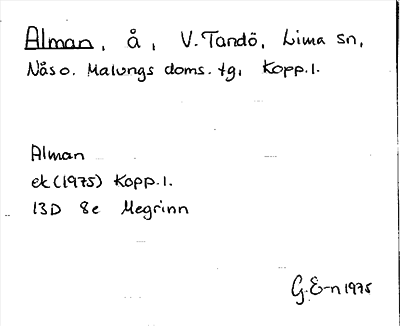 Alman, å, V. Tandö, Lima sn,
Nås o. Malungs doms. tg, Kopp. l.
Alman
ek (1975) Kopp. l.
13D 8e Megrinn
G. E-n 1975